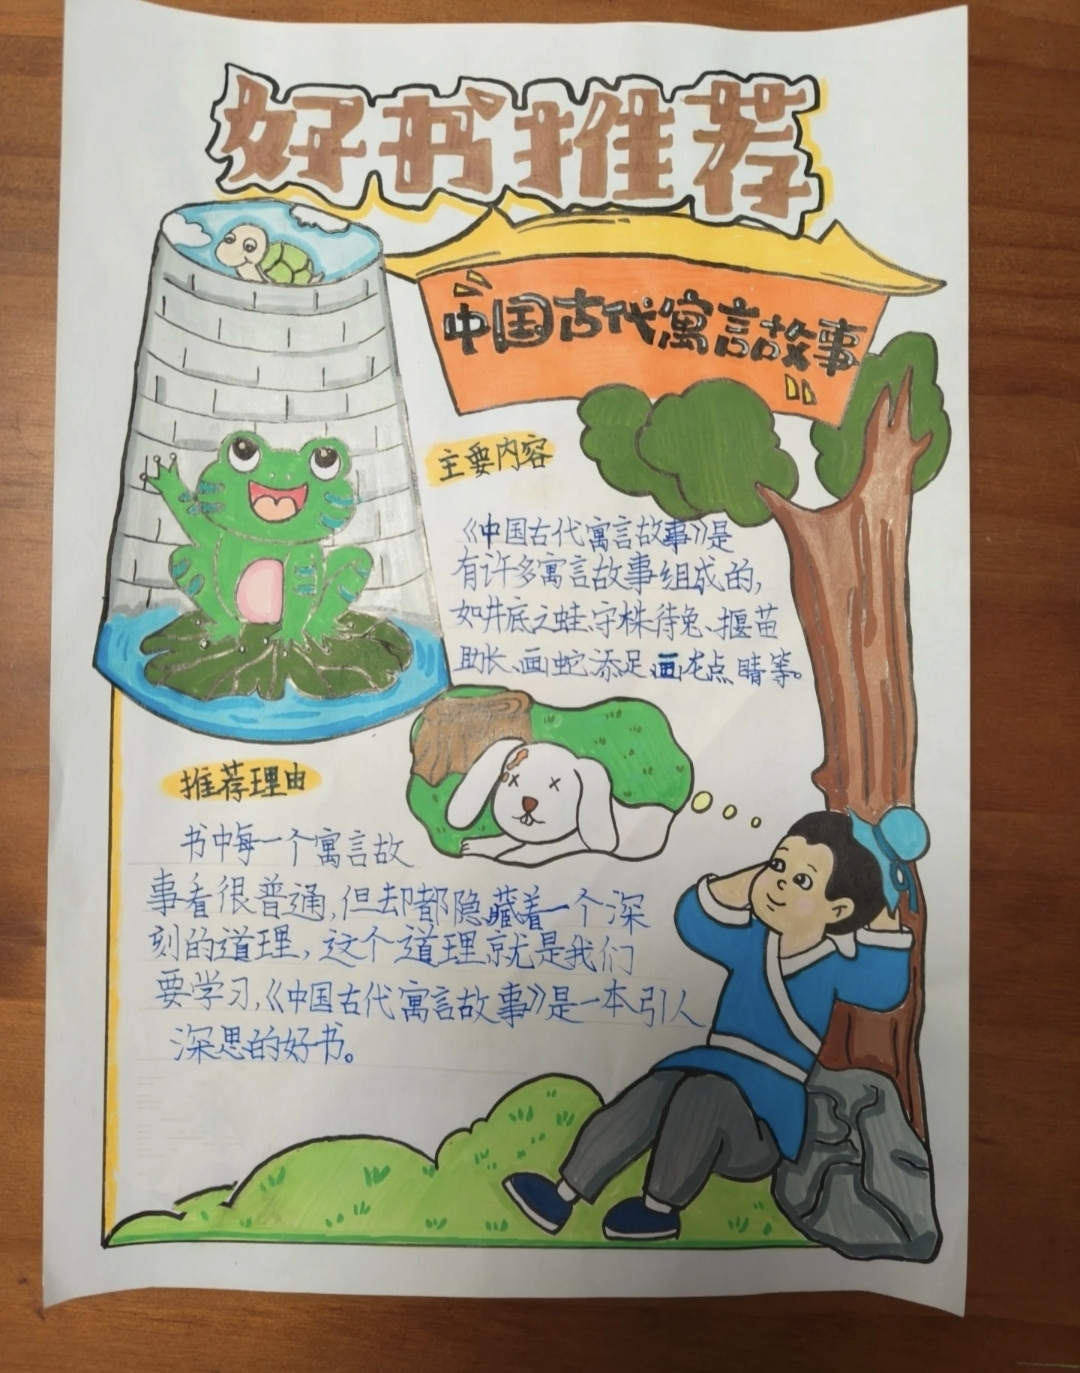 好书推荐
中国古代寓言故事
主要内容
《中国古代寓言故事》是
有许多寓言故事组成的,
如井底之蛙、守株待兔、揠苗
助长、画蛇添足画龙点睛等。
推荐理由
书中每一个寓言故
事看很普通,但却都隐藏着一个深
刻的道理,这个道理就是我们
要学习,《中国古代寓言故事》是一本引人
深思的好书。